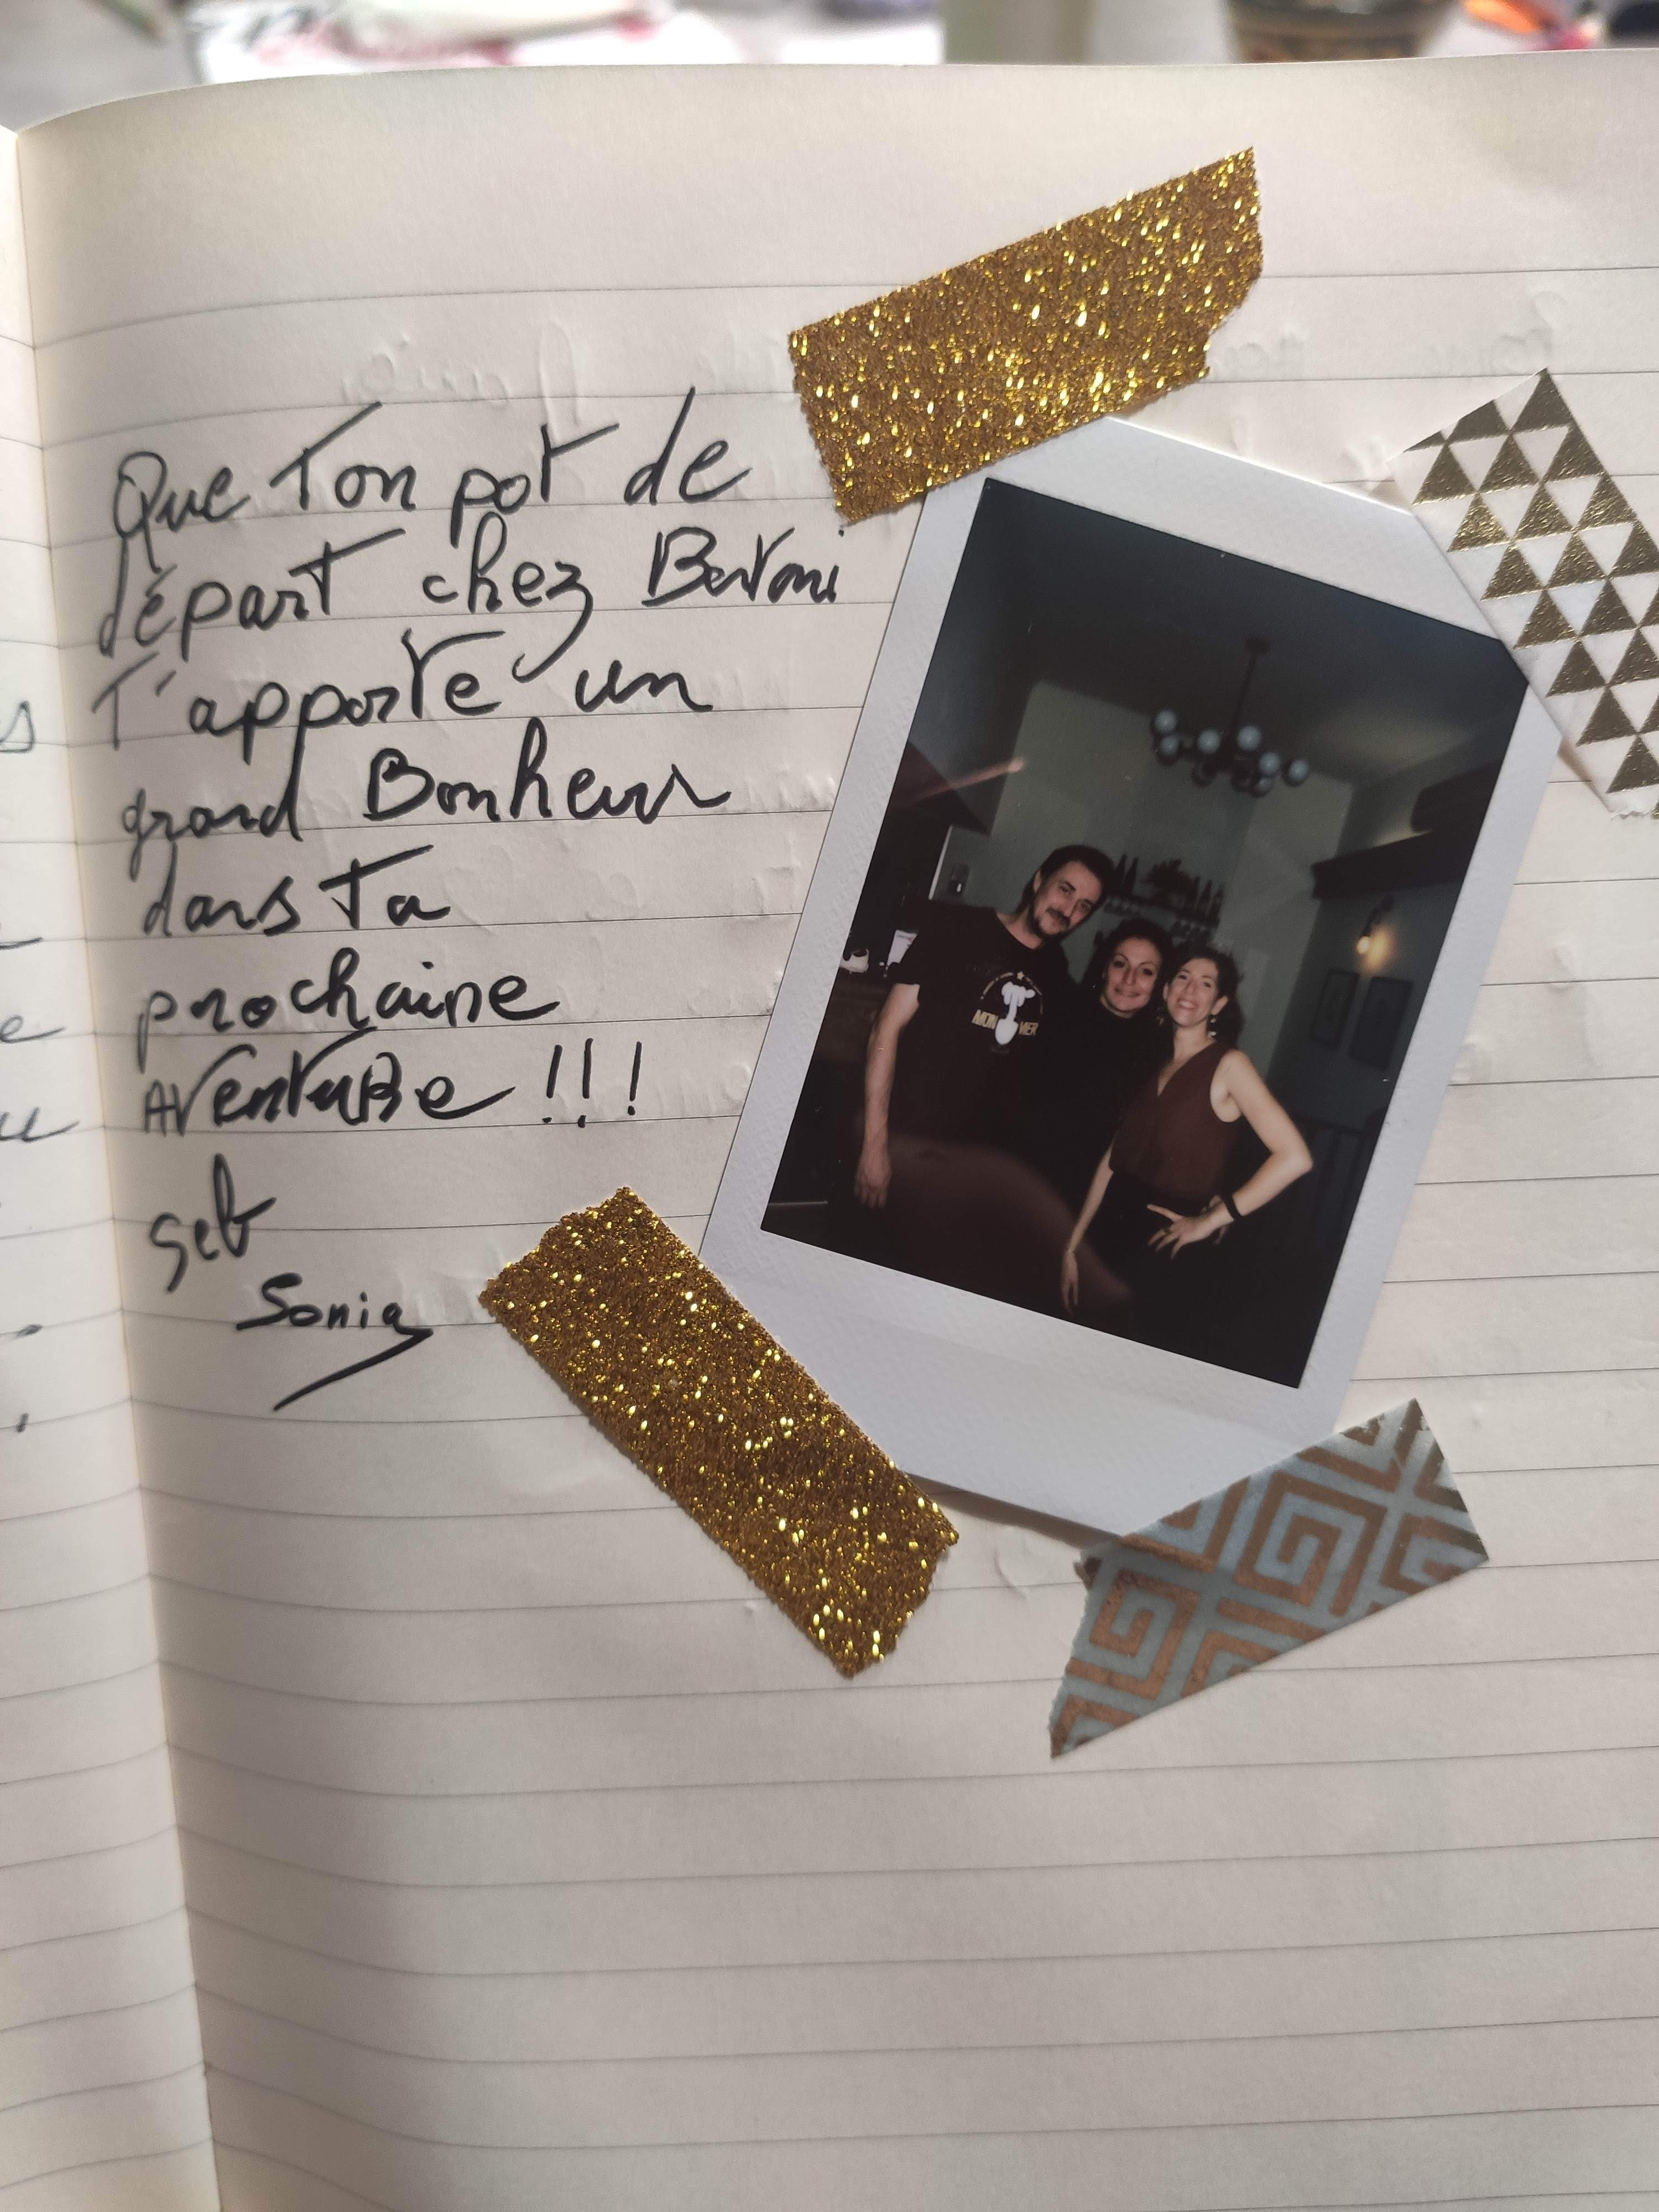 Que Ton pot de
départ chez
T'apporte un
grand Bonheur
dans Ta
prochaine
AVentuRe !!!
Seb
Sonia
MON